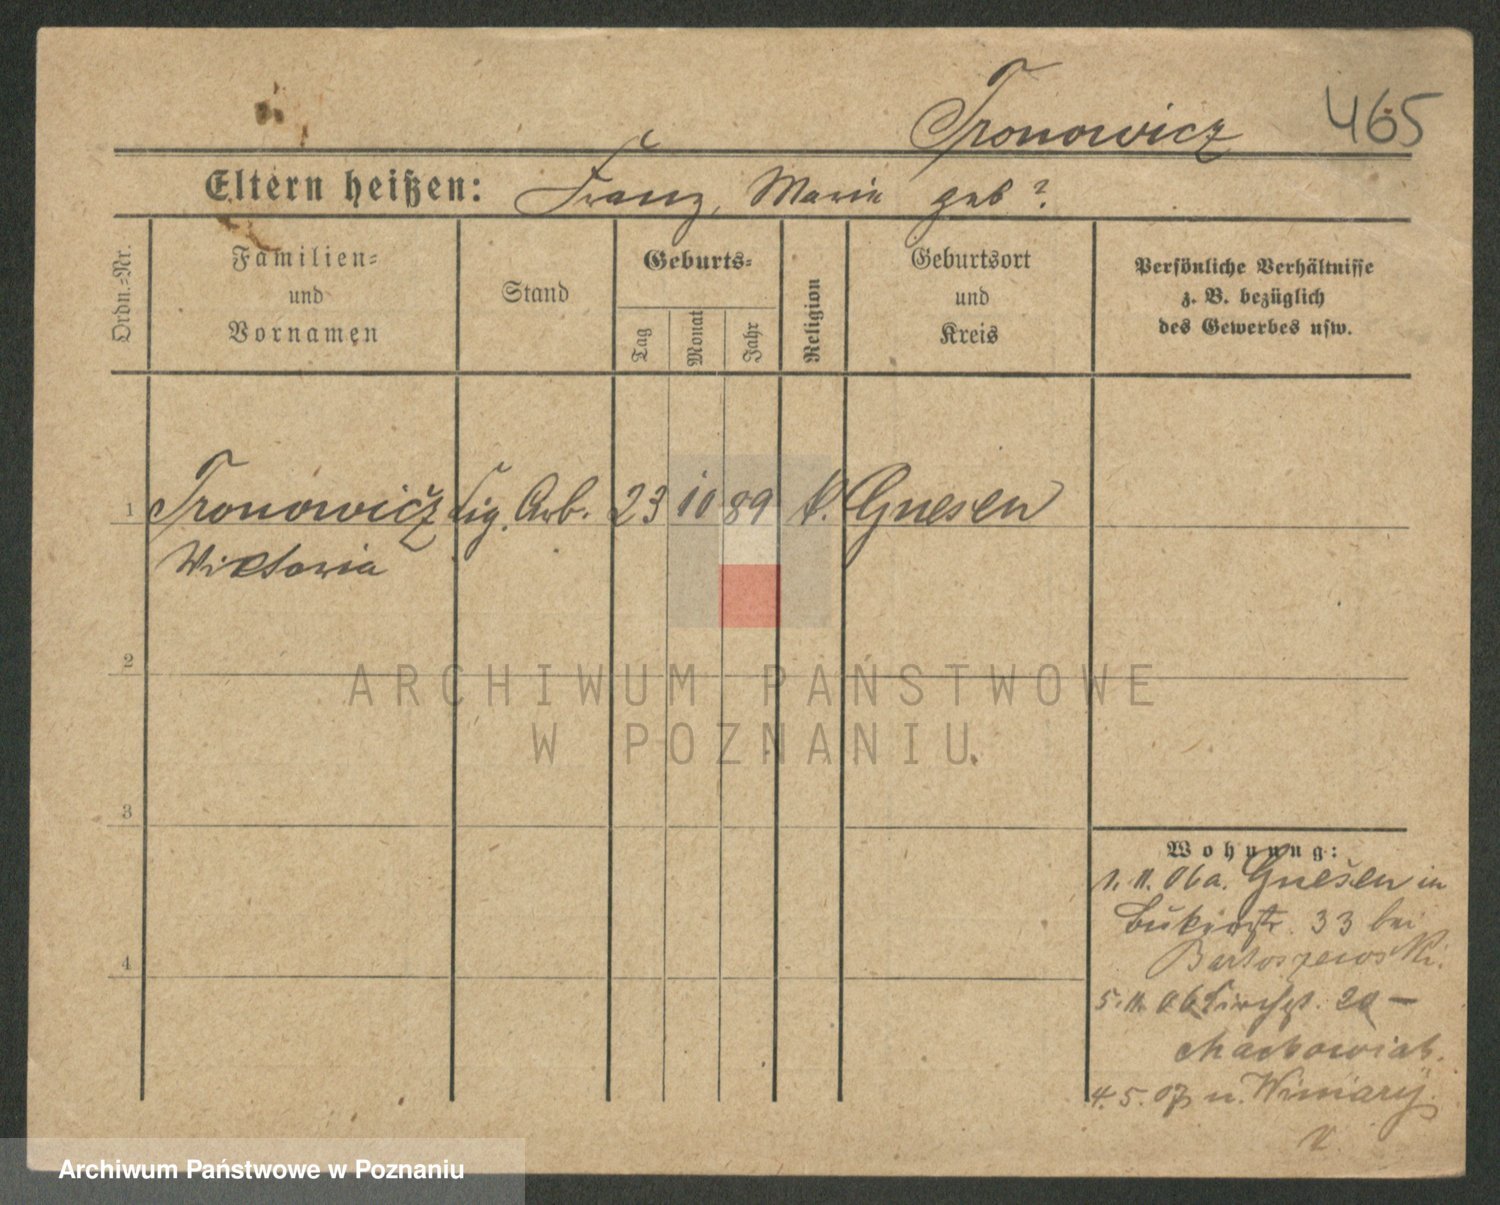 Tronowicz 465
Eltern heißen: Franz, Marie geb ?
Ordn.-Nr.
Familien-
und
Vornamen
Stand
Geburts-
Tag
Monat
Jahr
Religion
Geburtsort
und
Kreis
Persönliche Verhältnisse
z. B. bezüglich
des Gewerbes usw.
1 Tronowicz Cig. Arb. 23 10 89 k. Gnesen
Wiktoria
2
3
4
Wohnung:
1. 11. 06 a. Gnesen in
33 bei
Bartoszewski.
5. 11. 06 20 –
Maćkowiak.
4. 5. 07 n. Winiary.
ARCHIWUM PAŃSTWOWE
W POZNANIU
Archiwum Państwowe w Poznaniu